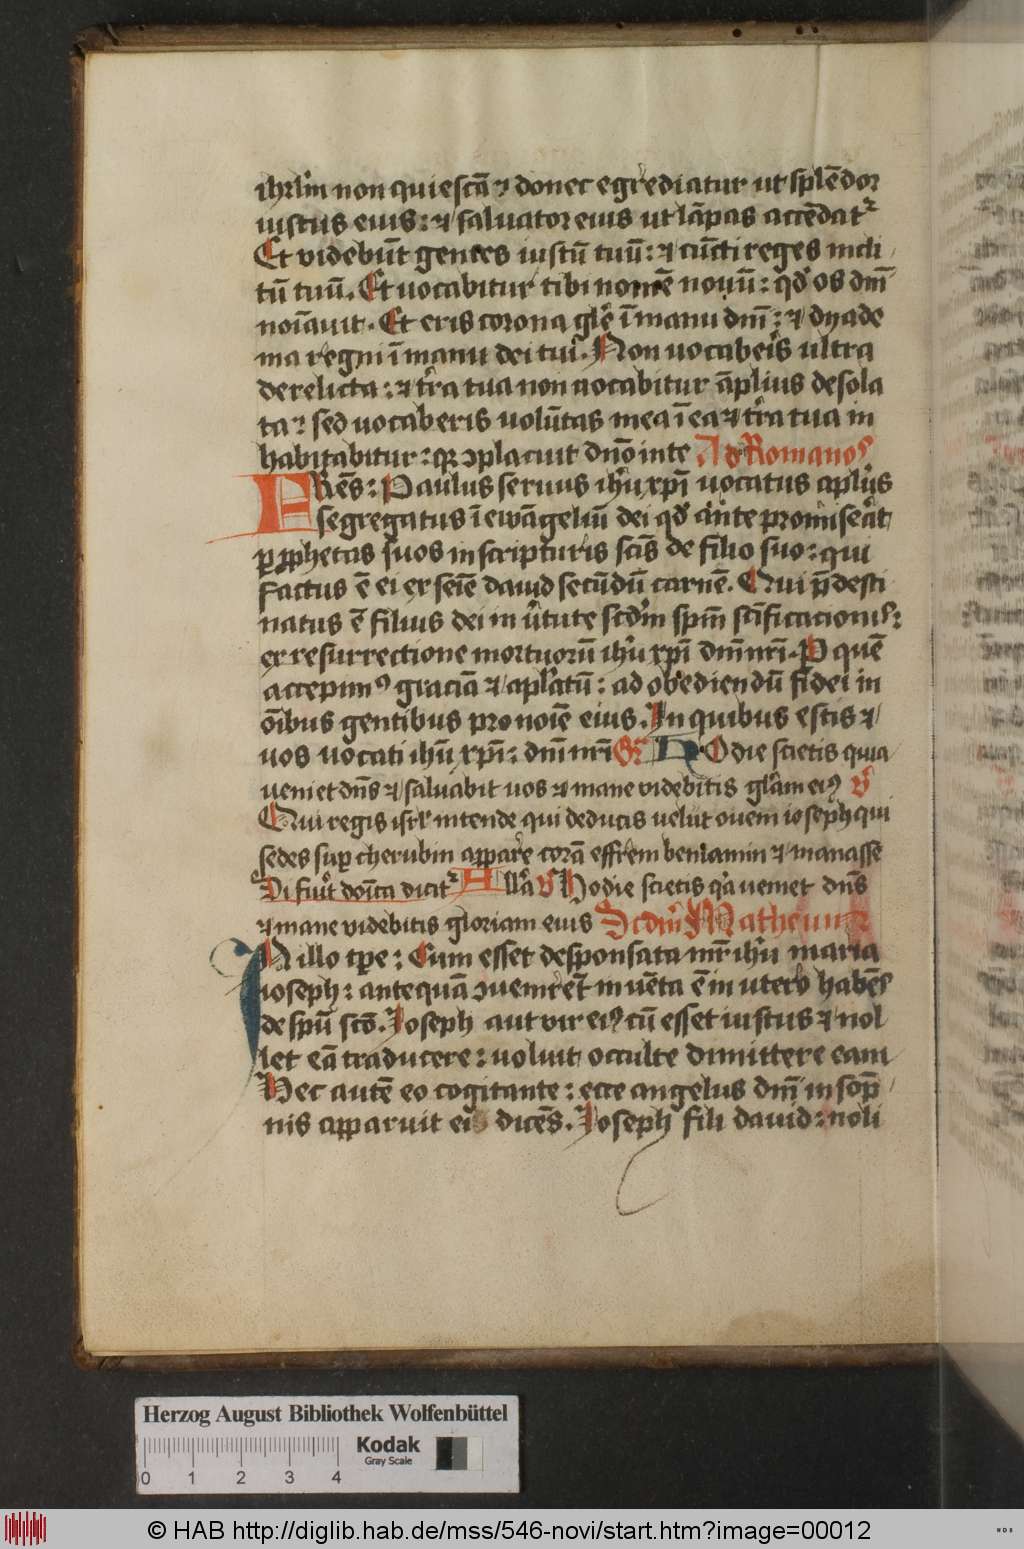 ihrl̄m non quiescā ⁊ donec egrediatur ut splēdor
iustus eius: ⁊ saluator eius ut lāpas accēdatᷣ
Et videbūt gentes iustū tuū: ⁊ cūcti reges incli
tū tuū. Et uocabitur tibi nomē nouū: qd̓ os dn̄i
noīauit. Et eris corona glē ī manu dn̄i: ⁊ dyade
ma regni ī manu dei tui. Non uocaberis ultra
derelicta: ⁊ tr̄a tua non uocabitur āplius desola
ta: sed uocaberis uolūtas mea ī ea ⁊ tr̄a tua in
habitabitur: qꝛ ↄplacuit dn̄o in te Ad Romanos
FRēs: Paulus seruus ihū xp̄i uocatus aplūs
segregatus ī ewāgeliū dei qd̓ ante promiserat
ꝑ ꝓphetas suos in scripturis sc̄is de filio suo: qui
factus ē ei ex seīe dauid secūdū carnē. Qui p̄desti
natus ē filius dei in ūtute scd̄m spm̄ sc̄ificacionis:
ex resurrectione mortuorū ihū xp̄i dn̄i nr̄i. P quē
accepimꝰ graciā ⁊ apl̄atū: ad obediendū fidei in
oībus gentibus pro noīe eius. In quibus estis ⁊
uos uocati ihū xp̄i: dn̄i nr̄i Gr̄ HOdie scietis quia
ueniet dn̄s ⁊ saluabit uos ⁊ mane videbitis glām eiꝰ v̄
Qui regis isrl̄ intende qui deducis uelut ouem ioseph qui
sedes suꝑ cherubin appare corā effrem beniamin ⁊ manasse
Di fiūt dom̄ca dicitᷣ All̄a v̄ Hodie scietis qa ueniet dn̄s
⁊ mane videbitis gloriam eius Scdm̄ Matheum
IN illo tꝑe: Cum esset desponsata mr̄ ihū maria
ioseph: antequā ↄuenirēt inuēta ē in utero habēs
de spū scō. Ioseph aut vir eiꝰ cū esset iustus ⁊ nol
let eā traducere: uoluit occulte dimittere eam
Hec autē eo cogitante: ecce angelus dn̄i in sōp
nis apparuit ei dicēs. Ioseph fili dauid: noli
Herzog August Bibliothek Wolfenbüttel
Kodak
Gray Scale
0 1 2 3 4
© HAB http://diglib.hab.de/mss/546-novi/start.htm?image=00012